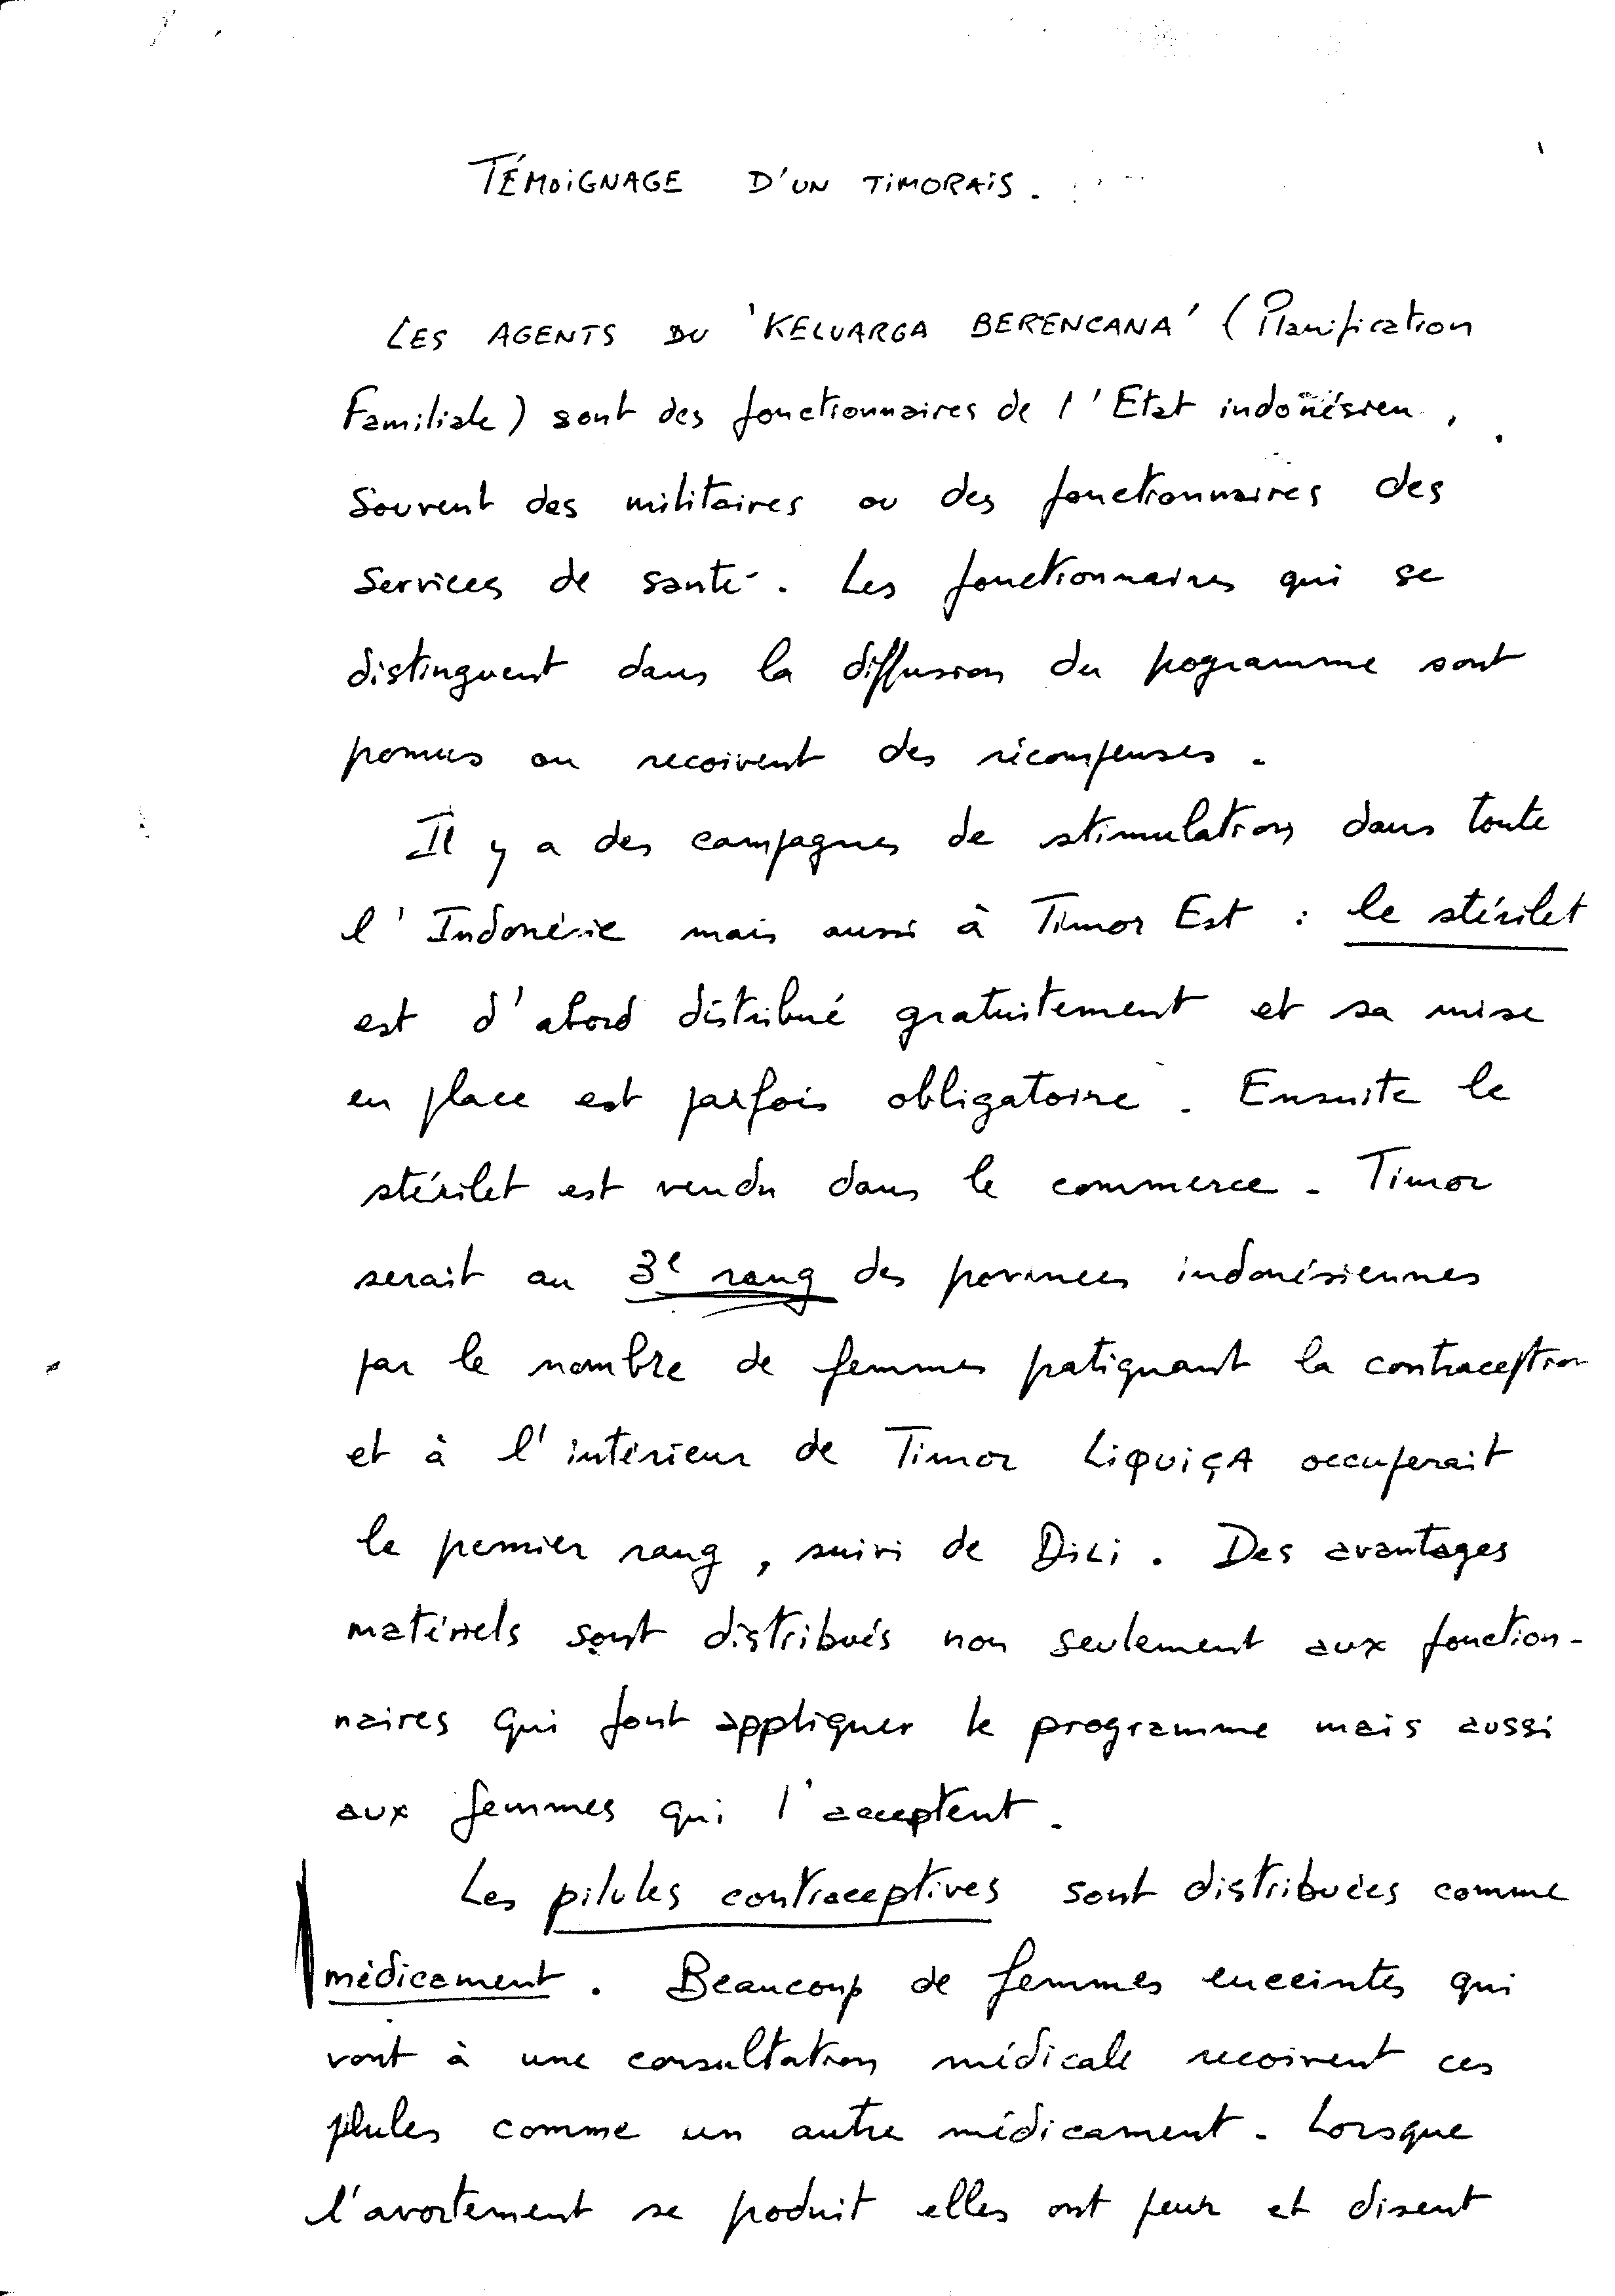 TÉMOIGNAGE D'UN TIMORAIS.
LES AGENTS DU 'KELUARGA BERENCANA' (Planification
Familiale) sont des fonctionnaires de l'Etat indonésien,
Souvent des militaires ou des fonctionnaires des
Services de santé. Les fonctionnaires qui se
distinguent dans la diffusion du programme sont
promus ou reçoivent des récompenses.
Il y a des campagnes de stimulation dans toute
l'Indonésie mais aussi à Timor Est : le stérilet
est d'abord distribué gratuitement et sa mise
en place est parfois obligatoire. Ensuite le
stérilet est vendu dans le commerce. Timor
serait au 3e rang des provinces indonésiennes
par le nombre de femmes pratiquant la contraception
et à l'intérieur de Timor LIQUIÇA occuperait
le premier rang, suivi de DILI. Des avantages
matériels sont distribués non seulement aux fonction-
naires qui font appliquer le programme mais aussi
aux femmes qui l'acceptent.
Les pilules contraceptives sont distribuées comme
médicament. Beaucoup de femmes enceintes qui
vont à une consultation médicale reçoivent ces
pilules comme un autre médicament. Lorsque
l'avortement se produit elles ont peur et disent